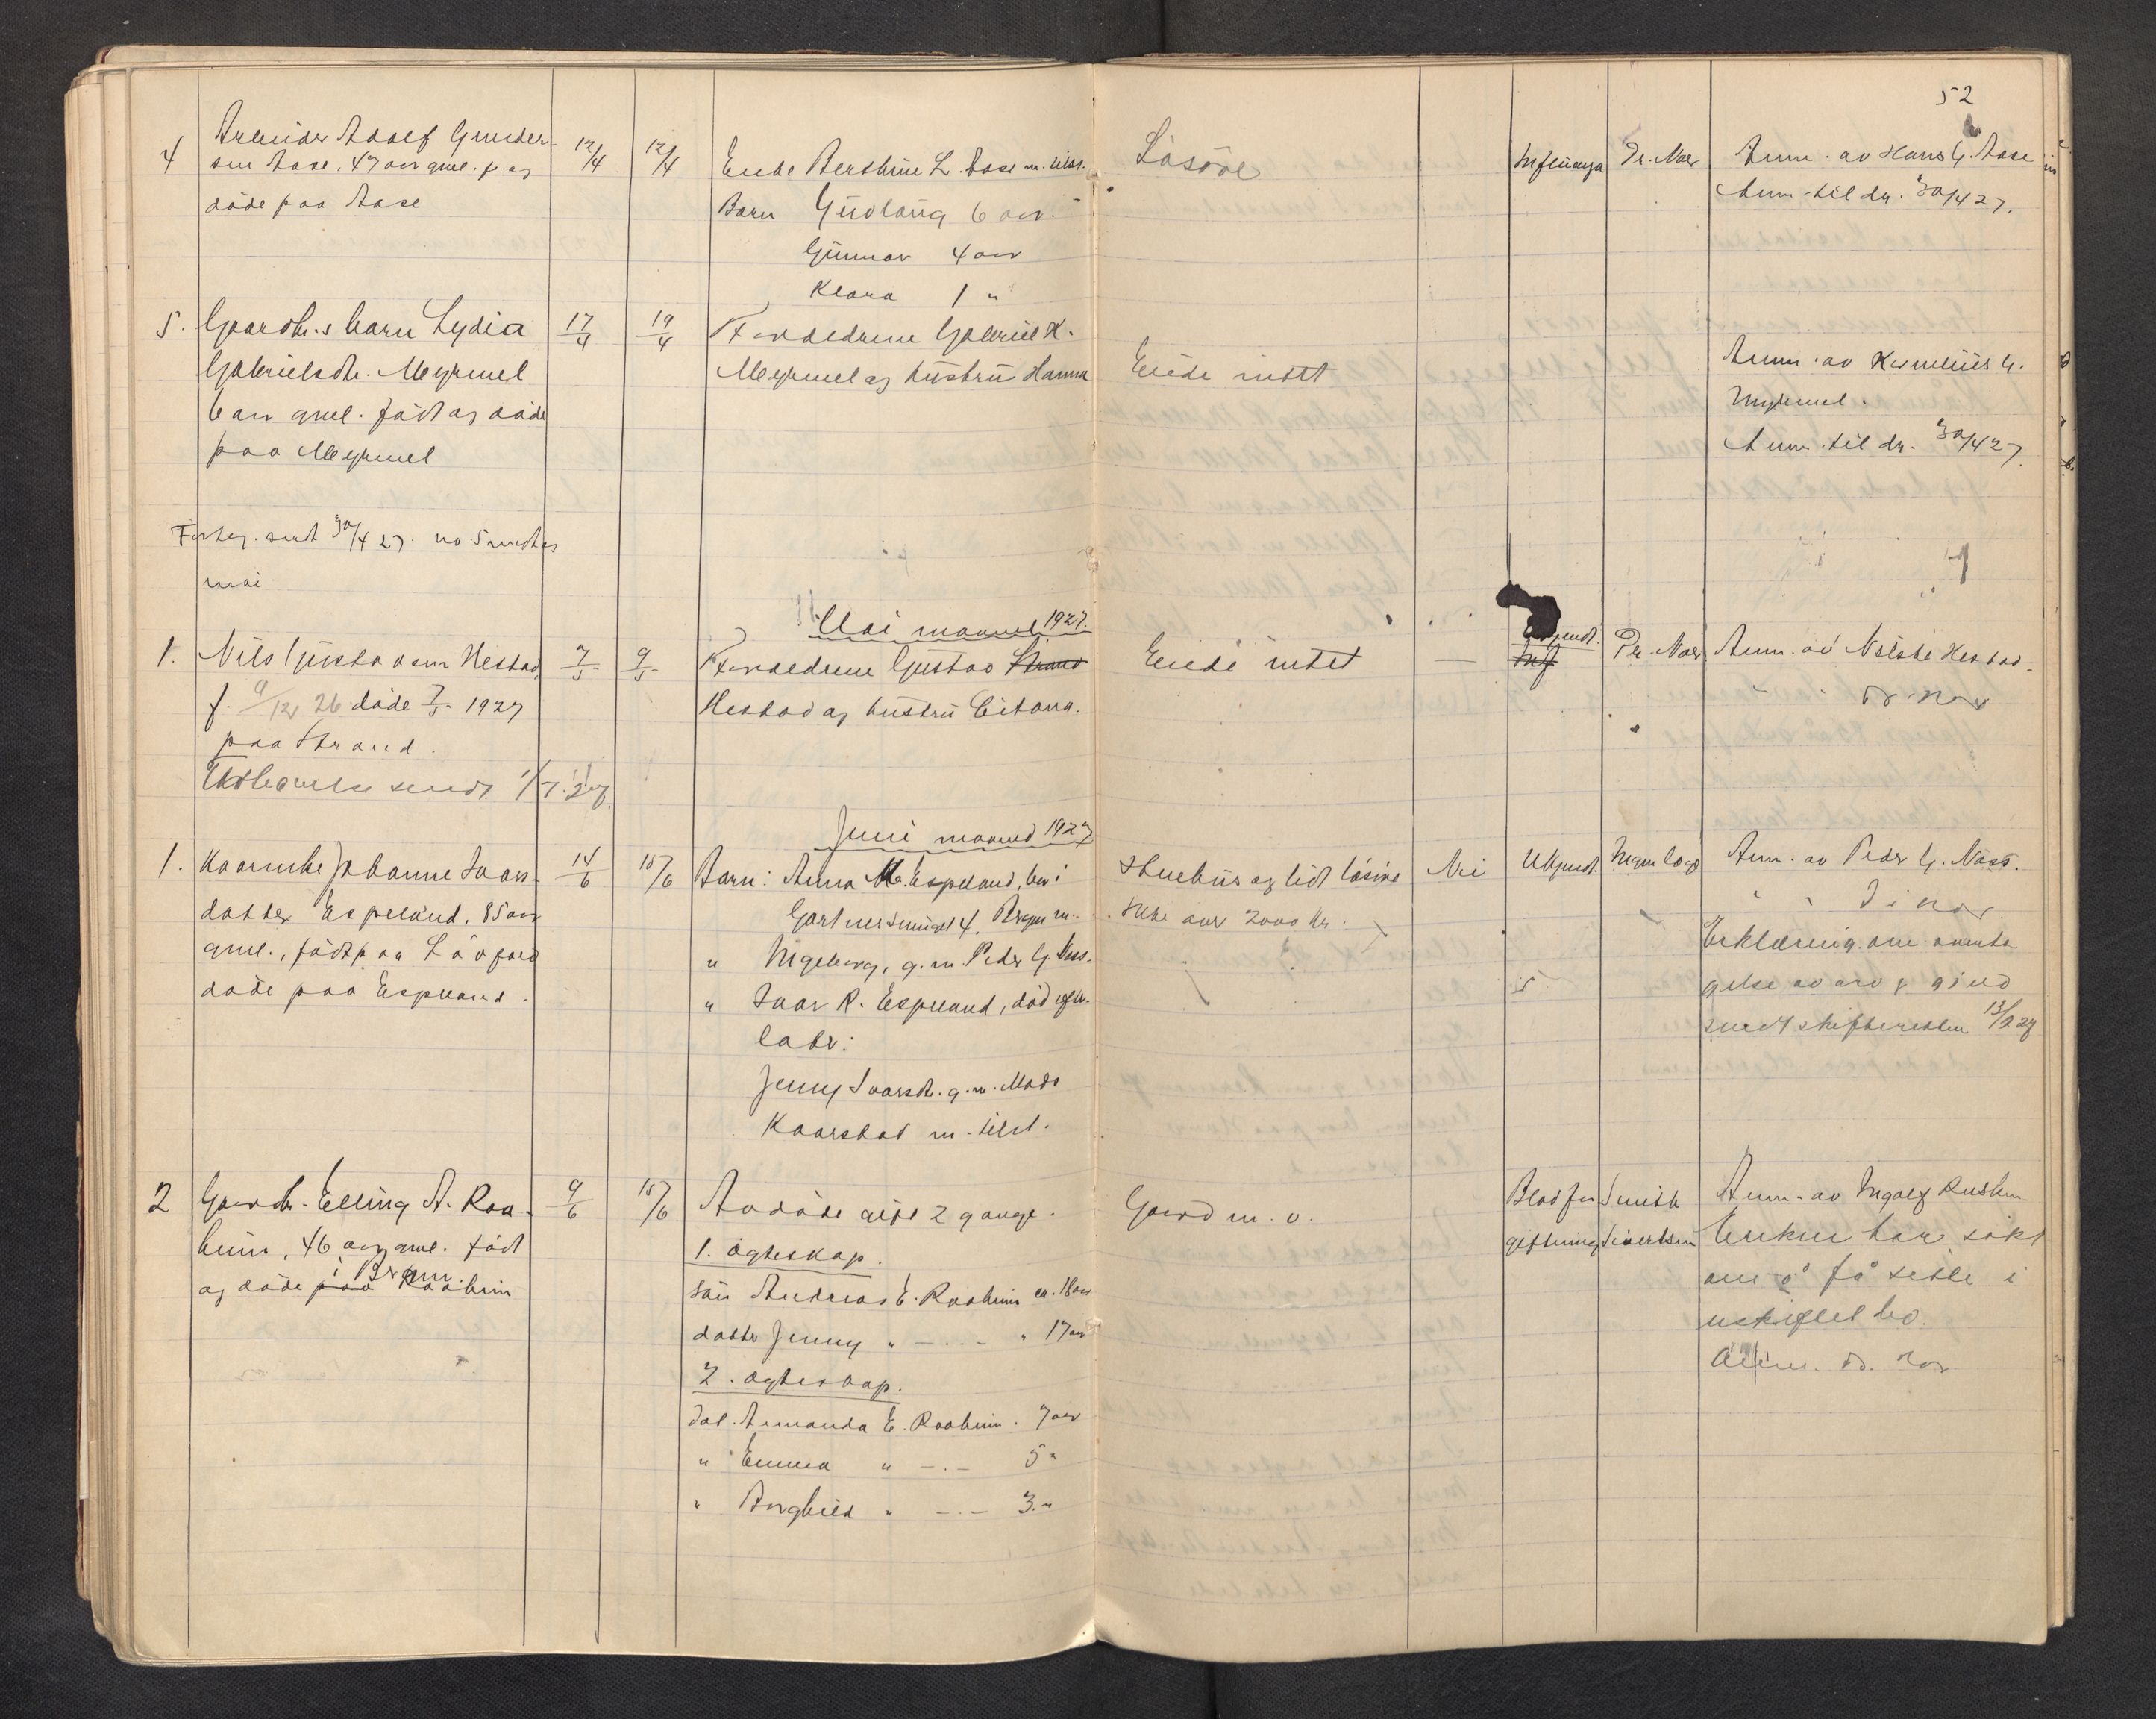 52
4
Arbeider Adolf Gunder-
sen Aase, 47 aar gml. f. og
døde paa Aase
12/4
12/4
Enke Berthine L. Aase m. tilst.
Barn Gudlaug 6 aar.
Gunnar 4 aar
Klara 1 "
Løsøre
Influenza
Dr. Naer
Anm. av Hans G. Aase
Anm. til dr. 30/4 27.
5.
Gaardbr.s barn Lydia
Gabrielsdtr. Myrmel
6 aar gml. født og døde
paa Myrmel
17/4
19/4
Foraldrene Gabriel K.
Myrmel og hustru Hanna
Eiede intet
Anm. av Kornelius G.
Myrmel.
Anm. til dr. 30/4 27.
Forteg. sendt 30/4 27. no 5 medtas
mai
Mai maaned 1927.
1.
Nils Gustavsen Hestad,
f. 9/12 26 døde 7/5 1927
paa Strand.
Utskrift sendt 1/7. 27.
7/5
9/5
Foraldrene Gustav Strand
Hestad og hustru
Eiede intet
—
Ukjendt.
Inf
Dr. Naer
Anm. av Hestad.
" " Dr. Naer
Juni maaned 1927
1.
Kaarinke Johanne Ivars-
datter Espeland, 85 aar
gml., født paa Løvfald
døde paa Espeland.
14/6
15/6
Barn: Anna M. Espeland, bor i
Gartnersmuget 4, Bergen m.
" Ingeborg, g. m. Peder G. Nass.
" Ivar R. Espeland, død efter-
latr:
Jenny Ivarsdt. g. m. Mads
Kaarstad m. tilst.
Stuehus og lidt løsøre
Ikke over 2000 kr.
Nei
Ukjendt.
Ingen læge
Anm. av Peder G. Nass.
Erklæring om overta
gelse av arv & gjeld
sendt skifteretten 13/9 27
2
Gaardbr. Elling A. Raa-
heim, 46 aar gml. født
og døde paa Raaheim
i Bergen.
9/6
15/6
Avdøde gift 2 gange.
1. ægteskap.
Søn Andreas E. Raaheim ca. 18 aar
datter Jenny " — . . — " 17 aar
2. ægteskap.
Dat. Armanda E. Raaheim. 7 aar
" Emma " — . — 5 "
" Borghild " — . — 3. "
Gaard m. v.
Blodfor
giftning
Smith
Sivertsen
Anm. av Ingolf
Enken har søkt
om å få sitte i
uskiftet bo.
Anm. Dr. Naer